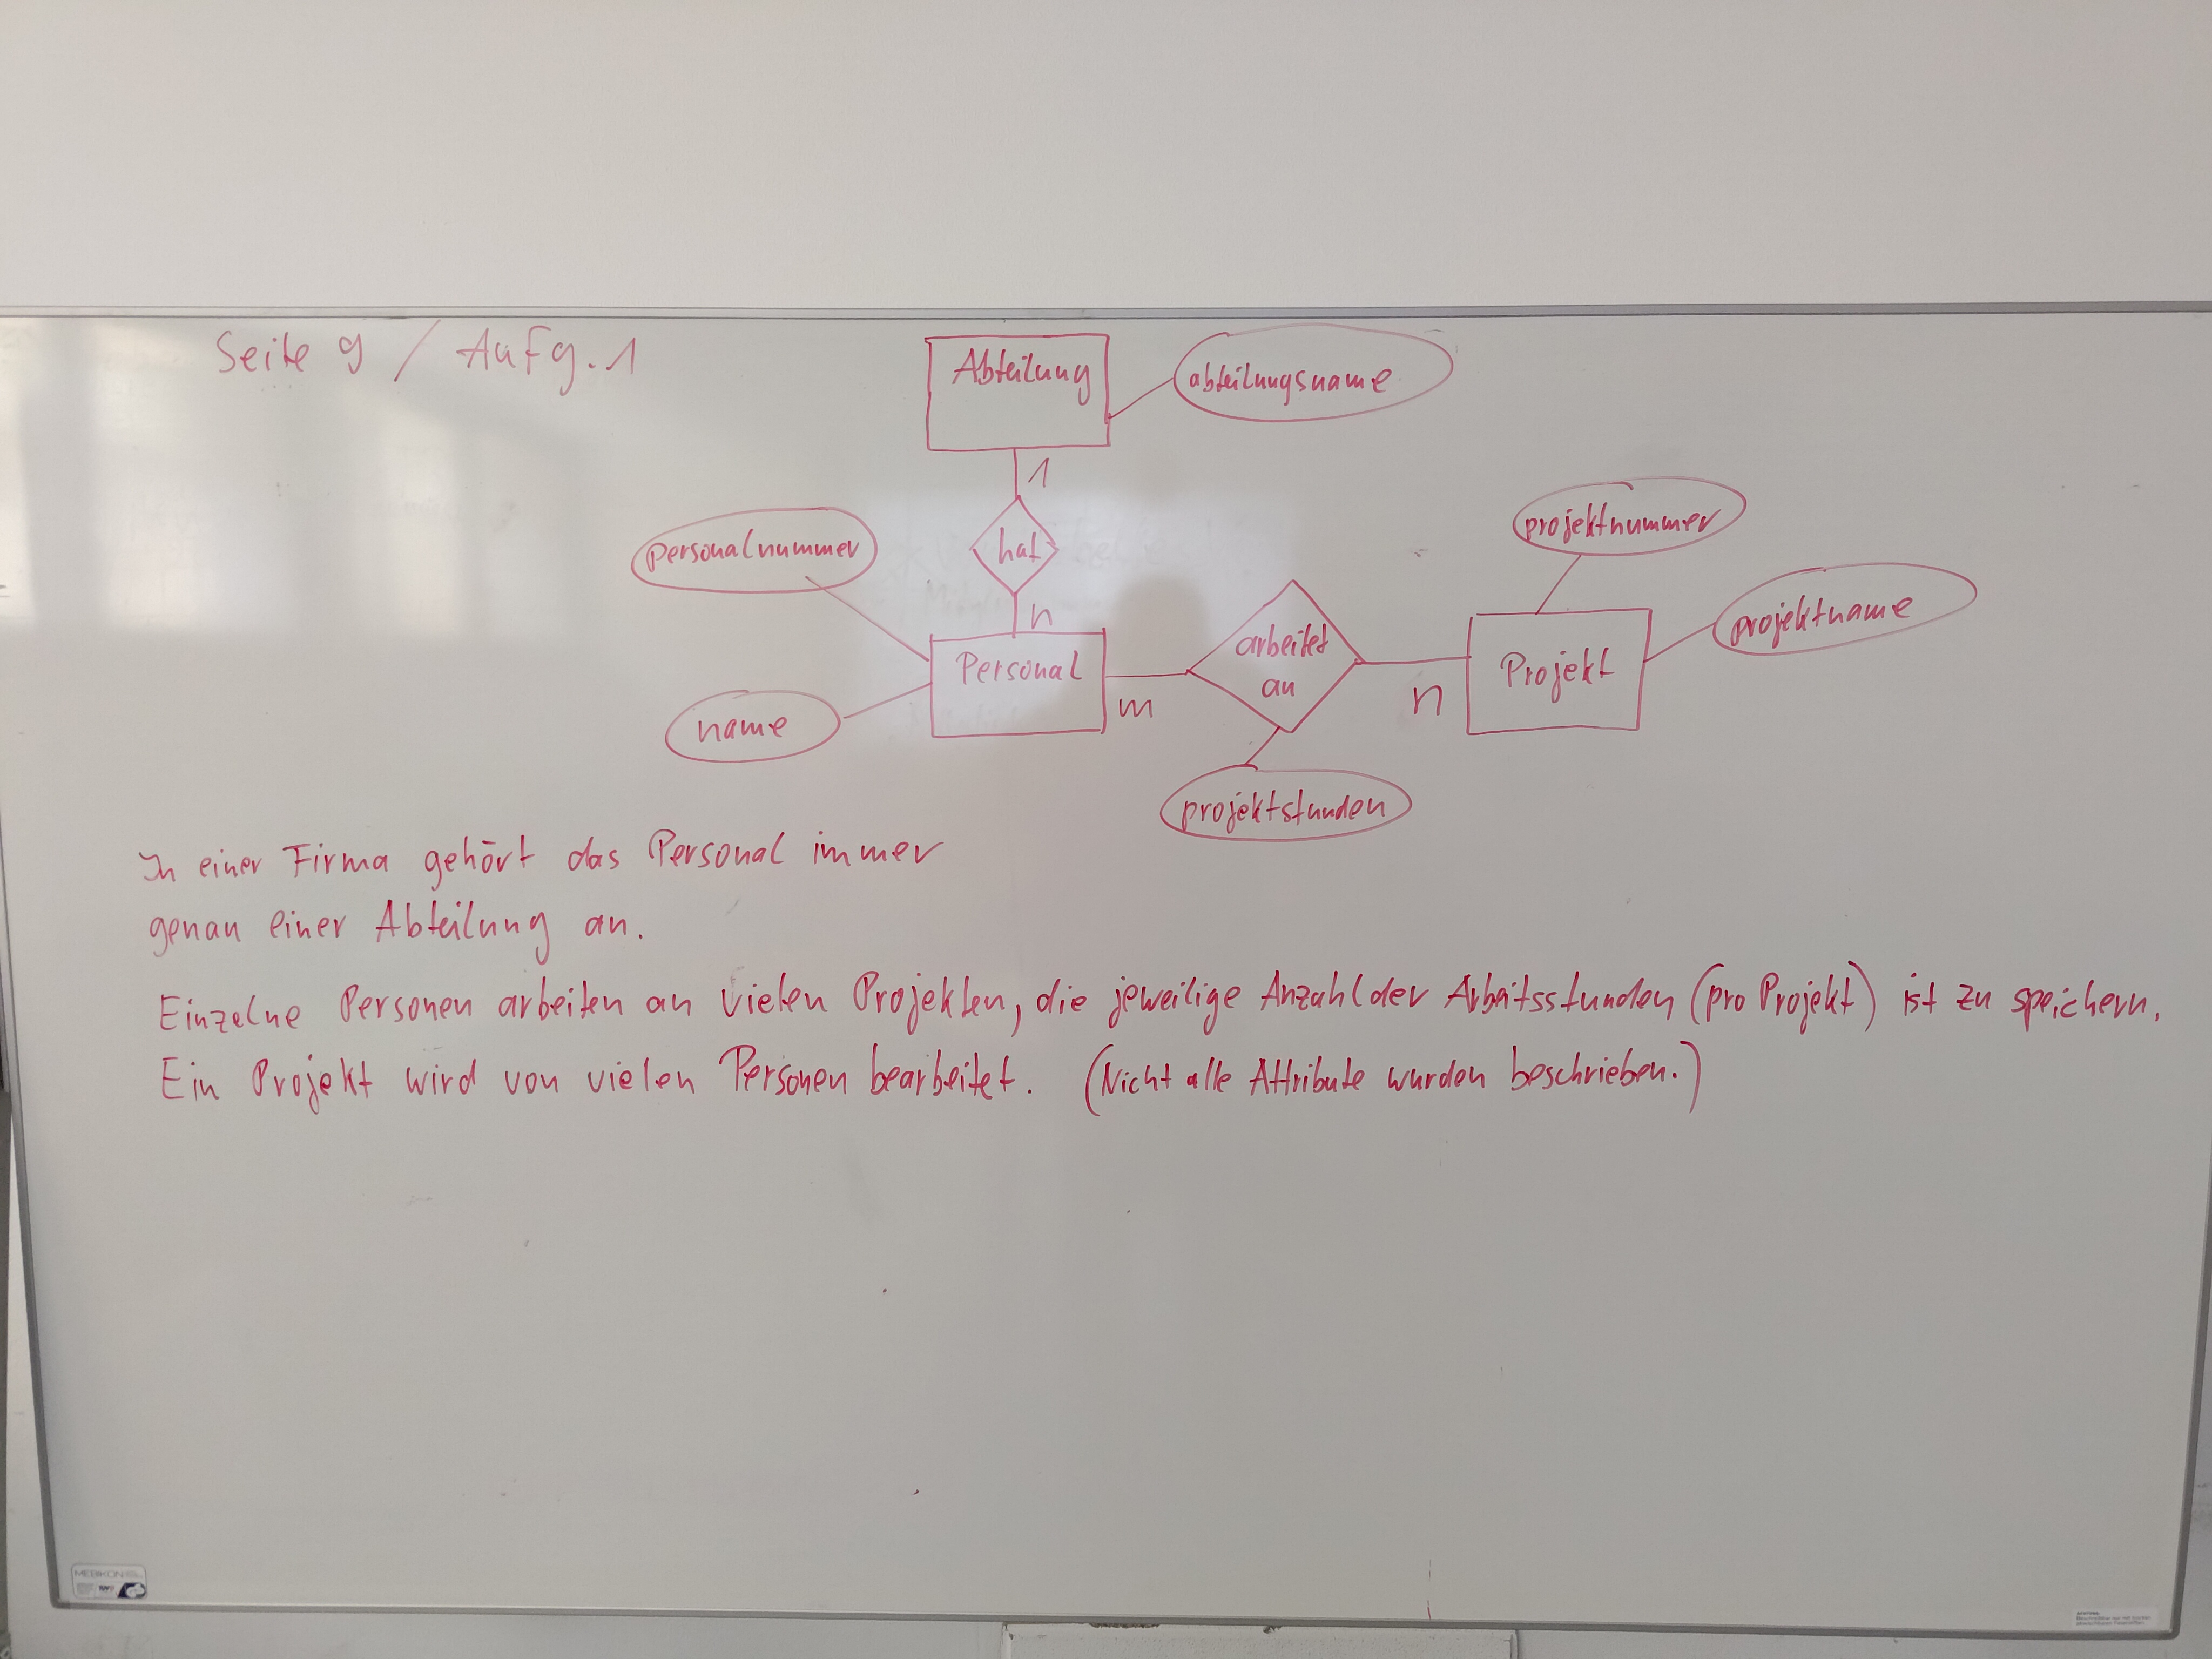 Seite 9 / Aufg. 1
Abteilung
abteilungsname
1
hat
n
personalnummer
name
Personal
m
arbeitet
an
projektstunden
n
Projekt
projektnummer
projektname
In einer Firma gehört das Personal immer
genau einer Abteilung an.
Einzelne Personen arbeiten an vielen Projekten, die jeweilige Anzahl der Arbeitsstunden (pro Projekt) ist zu speichern.
Ein Projekt wird von vielen Personen bearbeitet. (Nicht alle Attribute wurden beschrieben.)
MEBIKON